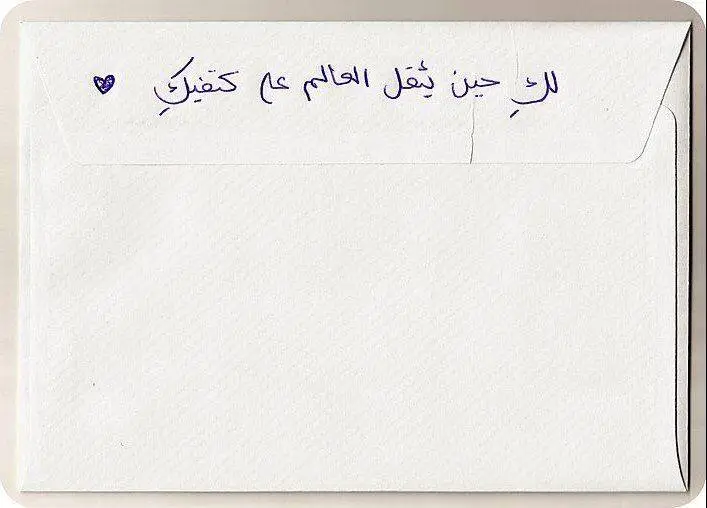 لكِ حين يُثقل العالم على كتفيكِ ♥